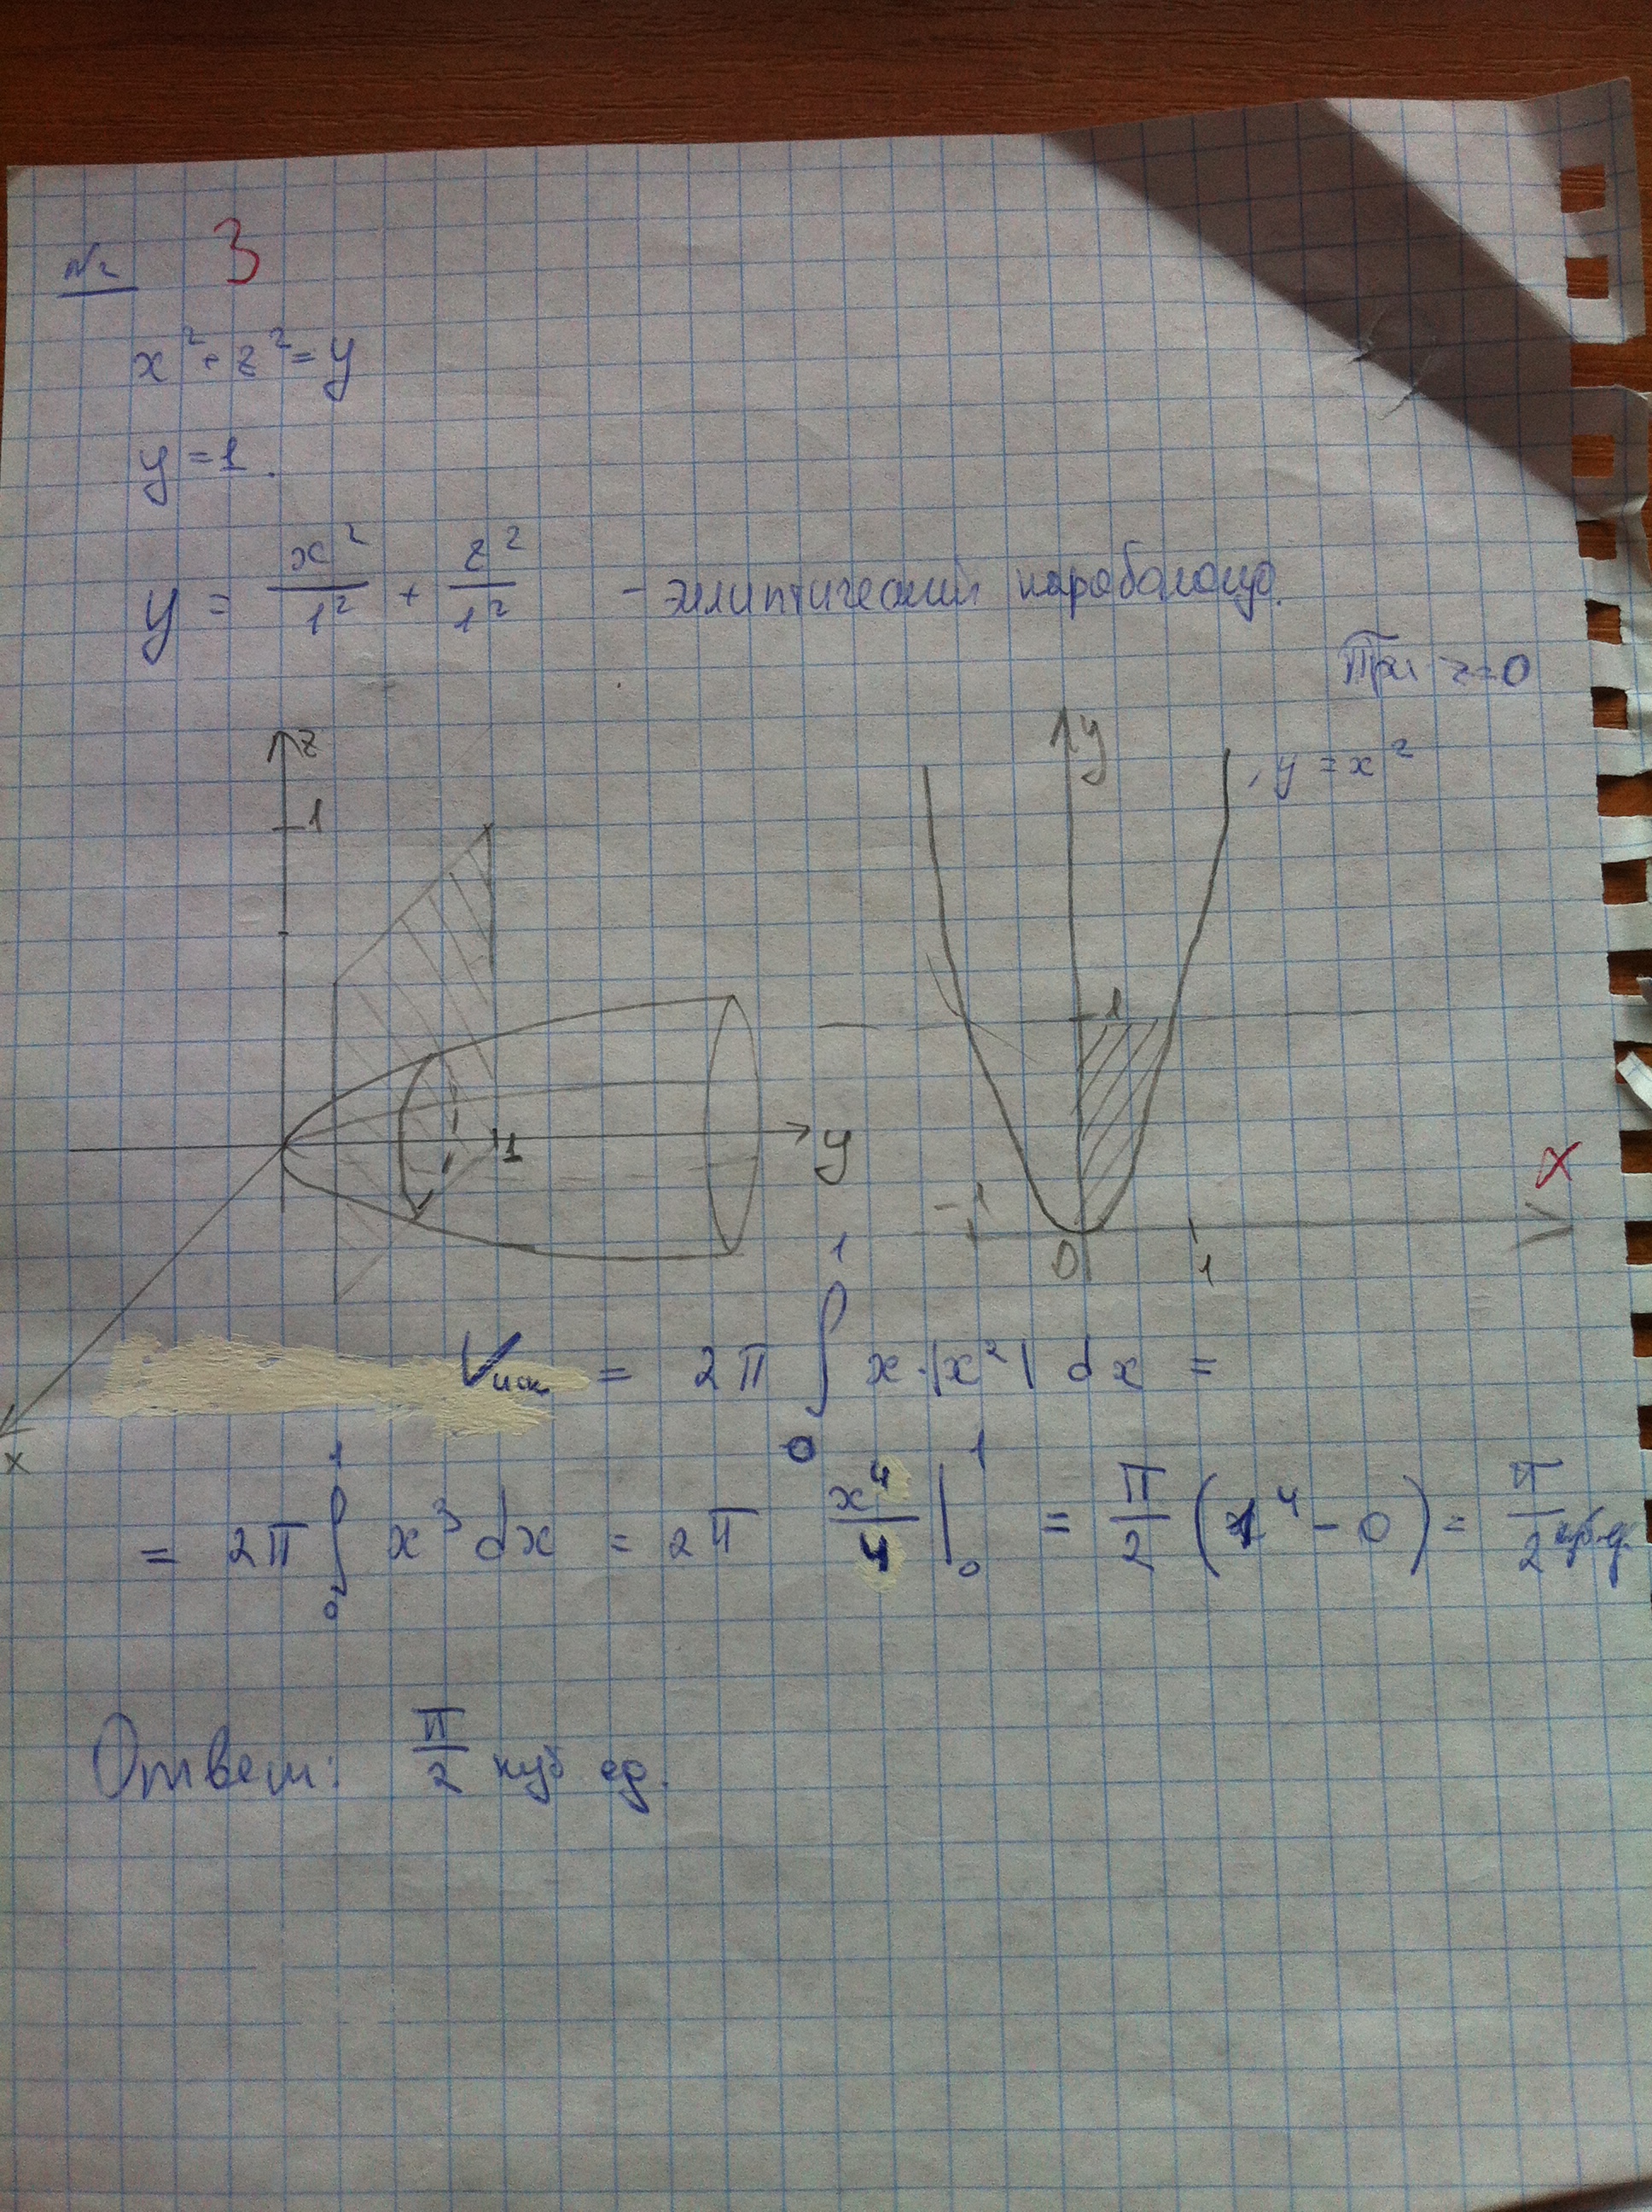 №2 3
x² + z² = y
y = 1.
y = x²/1² + z²/1² - эллиптический параболоид.
При z=0
z
1
y
1
x
y
y = x²
1
-1
0
1
x
Vиск = 2π ∫₀¹ x·|x²| dx =
= 2π ∫₀¹ x³ dx = 2π x⁴/4 |₀¹ = π/2 (1⁴ - 0) = π/2 куб.ед.
Ответ: π/2 куб ед.